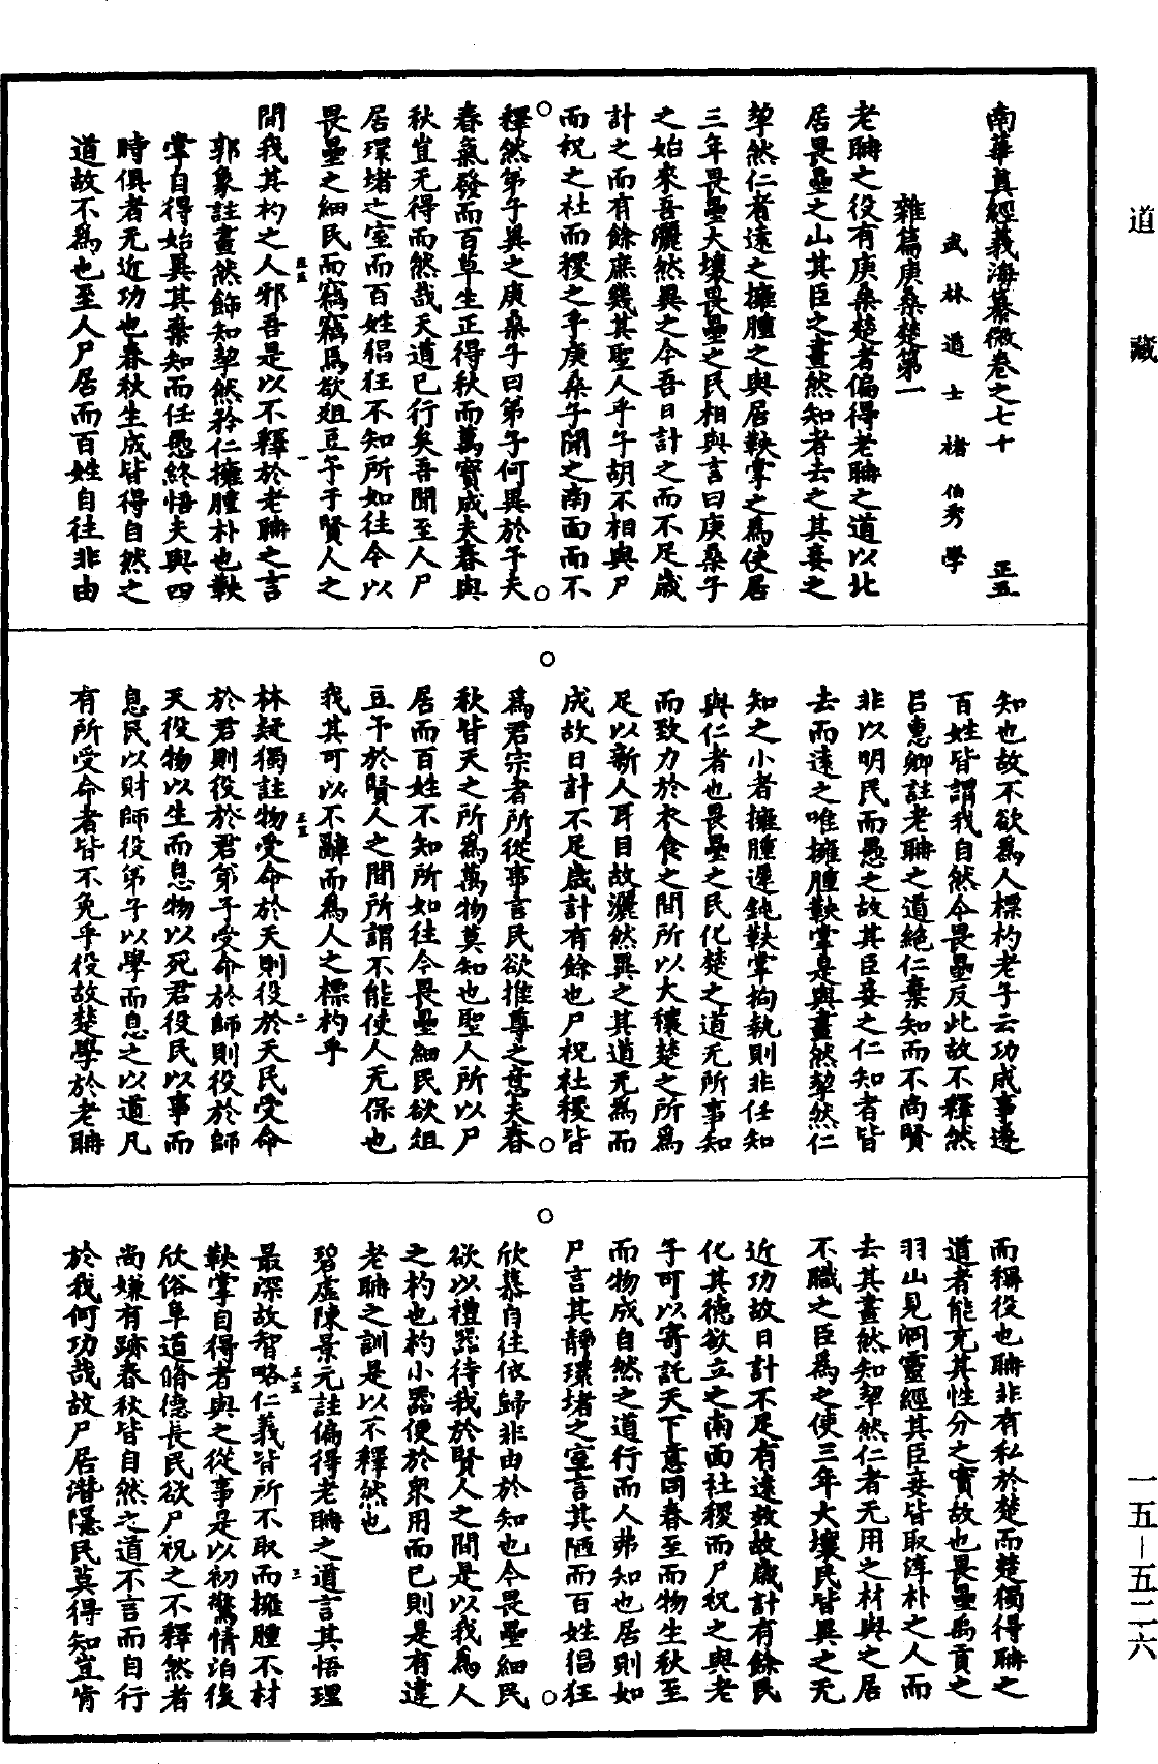 道藏
南華真經義海纂微卷之七十 正五
武林道士褚伯秀學
雜篇庚桑楚第一
老聃之役有庚桑楚者偏得老聃之道以北
居畏壘之山其臣之畫然知者去之其妾之
挈然仁者遠之擁腫之與居鞅掌之為使居
三年畏壘大壤畏壘之民相與言曰庚桑子
之始來吾灑然異之今吾日計之而不足歲
計之而有餘庶幾其聖人乎子胡不相與尸
而祝之社而稷之乎庚桑子聞之南面而不
釋然弟子異之庚桑子曰弟子何異於予夫
春氣發而百草生正得秋而萬寶成夫春與
秋豈无得而然哉天道已行矣吾聞至人尸
居環堵之室而百姓猖狂不知所如往今以
畏壘之細民而竊竊焉欲俎豆予于賢人之
間我其杓之人邪吾是以不釋於老聃之言
郭象註畫然飾知挈然矜仁擁腫朴也鞅
掌自得始異其棄知而任愚終悟夫與四
時俱者无近功也春秋生成皆得自然之
道故不為也至人尸居而百姓自往非由
知也故不欲為人標杓老子云功成事遂
百姓皆謂我自然今畏壘反此故不釋然
呂惠卿註老聃之道絕仁棄知而不尚賢
非以明民而愚之故其臣妾之仁知者皆
去而遠之唯擁腫鞅掌是與畫然挈然仁
知之小者擁腫遲鈍鞅掌拘執則非任知
與仁者也畏壘之民化楚之道无所事知
而致力於衣食之間所以大穰楚之所為
足以新人耳目故灑然異之其道无為而
成故日計不足歲計有餘也尸祝社稷皆
為君宗者所從事言民欲推尊之意夫春
秋皆天之所為萬物莫知也聖人所以尸
居而百姓不知所如往今畏壘細民欲俎
豆予於賢人之間所謂不能使人无保也
我其可以不辭而為人之標杓乎
林疑獨註物受命於天則役於天民受命
於君則役於君弟子受命於師則役於師
天役物以生而息物以死君役民以事而
息民以財師役弟子以學而息之以道凡
有所受命者皆不免乎役故楚學於老聃
而稱役也聃非有私於楚而楚獨得聃之
道者能充其性分之實故也畏壘禹貢之
羽山見洞靈經其臣妾皆取淳朴之人而
去其畫然知挈然仁者无用之材與之居
不職之臣為之使三年大壤民皆異之无
近功故日計不足有遠效故歲計有餘民
化其德欲立之南面社稷而尸祝之與老
子可以寄託天下意同春至而物生秋至
而物成自然之道行而人弗知也居則如
尸言其靜環堵之室言其陋而百姓倡狂
欣慕自往依歸非由於知也今畏壘細民
欲以禮器待我於賢人之間是以我為人
之杓也杓小器便於衆用而已則是有違
老聃之訓是以不釋然也
碧虛陳景元註偏得老聃之道言其悟理
最深故智略仁義皆所不取而擁腫不材
鞅掌自得者與之從事是以初驚情泊後
欣俗阜道脩德長民欲尸祝之不釋然者
尚嫌有跡春秋皆自然之道不言而自行
於我何功哉故尸居潛隱民莫得知豈肯
一五—五二六